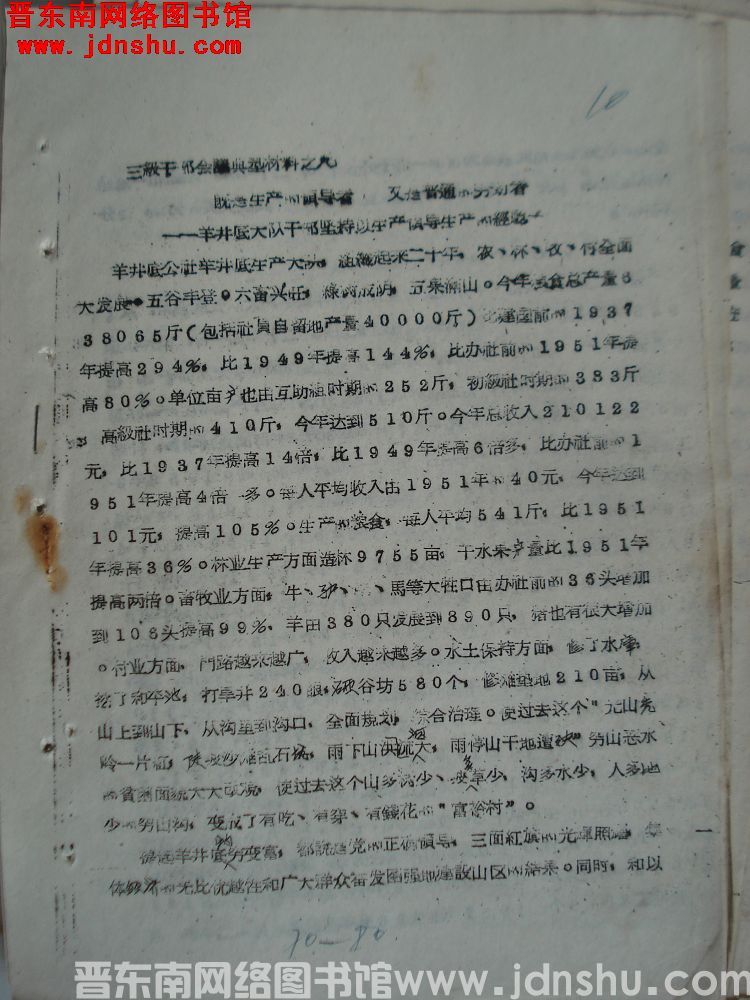 晋东南网络图书馆
www.jdnshu.com
10
三級干部会议典型材料之九
既是生产的領导者 又是普通的劳动者
——羊井底大队干部坚持以生产領导生产的經驗
羊井底公社羊井底生产大队,組織起来二十年,农、林、牧、付全面
大发展。五谷丰登。六畜兴旺,綠树成阴,五果满山。今年粮食总产量6
38065斤(包括社員自留地产量40000斤)比建国前的1937
年提高294%,比1949年提高144%,比办社前的1951年提
高80%。单位亩产也由互助組时期的252斤,初級社时期的383斤
高級社时期的410斤,今年达到510斤。今年总收入210122
元,比1937年提高14倍,比1949年提高6倍多,比办社前的1
951年提高4倍 多。每人平均收入由1951年的40元,今年达到
101元,提高105%。生产的粮食,每人平均541斤,比1951
年提高36%。林业生产方面造林9755亩,干水果产量比1951年
提高两倍。畜牧业方面,牛、驴、 、馬等大牲口由办社前的36头增加
到106头提高99%,羊由380只发展到890只,猪也有很大增加
。付业方面,門路越来越广,收入越来越多。水土保持方面,修了水库
挖了和平池,打旱井240眼,砍谷坊580个,修滩垫地210亩,从
山上到山下,从沟里到沟口,全面规划,综合治理。使过去这个“光山秃
岭一片荒,陡坡沙滩乱石坑,雨下山洪流大,雨停山干地遭 ”穷山恶水
的貧困面貌大大改观,使过去这个山多沟少、坡多草少,沟多水少,人多地
少的穷山沟,变成了有吃、有穿、有錢花的“富裕村”。
羊井底穷变富,都說是党的正确領导,三面紅旗的光輝照耀,集
体 无比优越性和广大群众奋发图强地建設山区的結果。同时,和以
70—80
晋东南网络图书馆 www.jdnshu.com